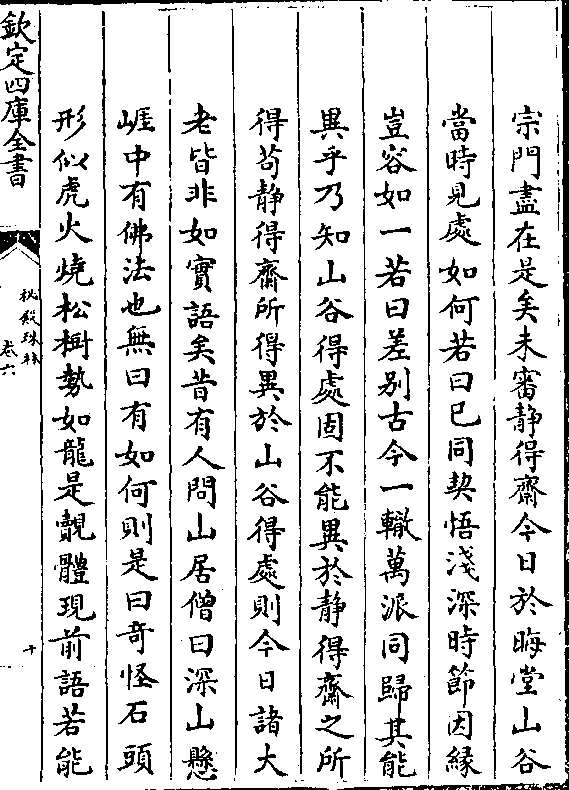 宗門盡在是矣未審静得齋今日於晦堂山谷
當時見處如何若曰已同契悟淺深時節因緣
豈容如一若曰差别古今一轍萬派同歸其能
異乎乃知山谷得處固不能異於静得齋之所
得苟静得齋所得異於山谷得處則今日諸大
老皆非如實語矣昔有人問山居僧曰深山懸
崕中有佛法也無曰有如何則是曰奇怪石頭
形似虎火燒松樹勢如龍是覿體現前語若能
欽定四庫全書
秘殿珠林
卷六
十